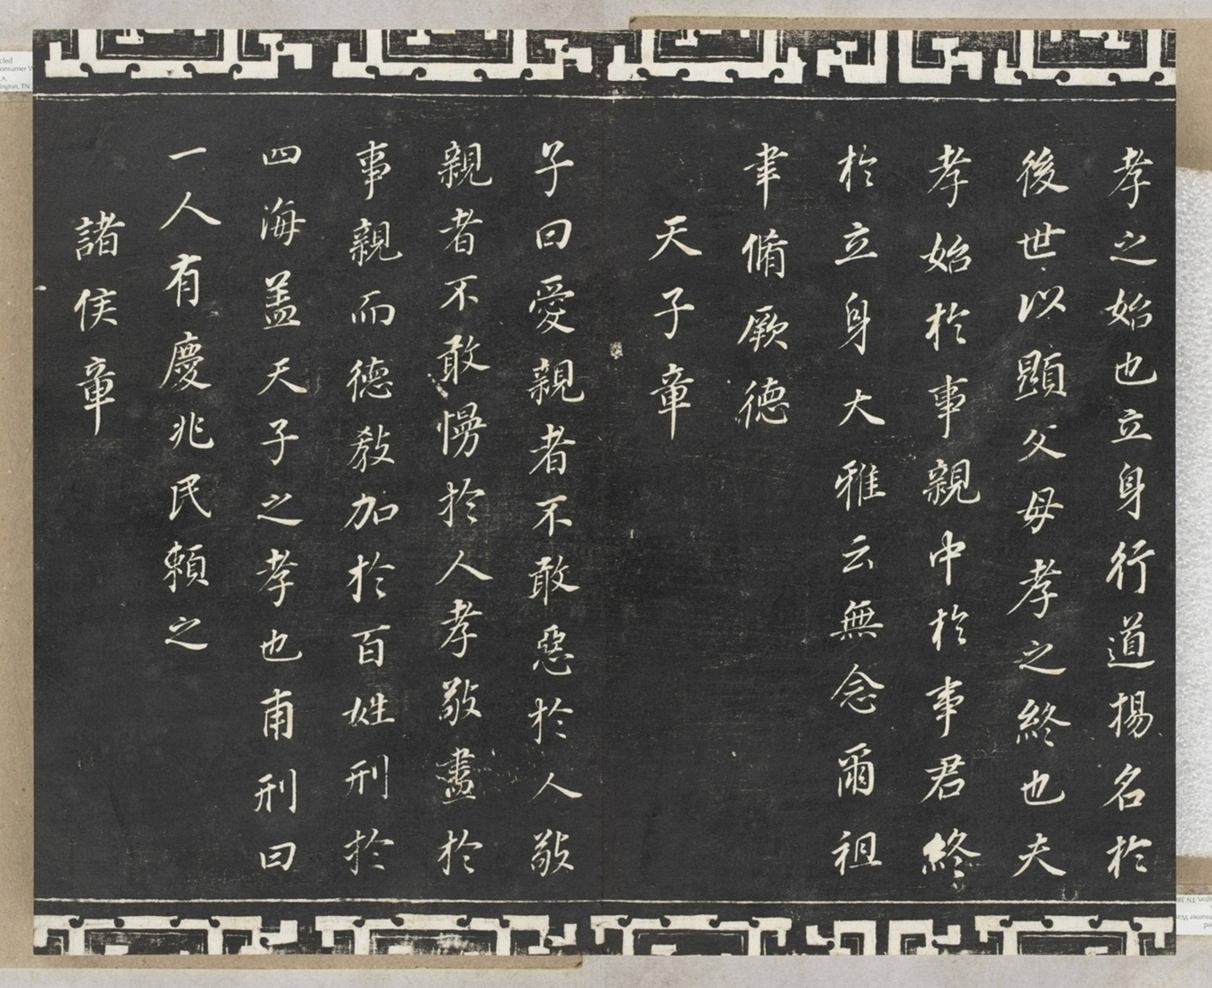 孝之始也立身行道揚名於
後世以顯父母孝之終也夫
孝始於事親中於事君終
於立身大雅云無念爾祖
聿脩厥德
天子章
子曰愛親者不敢惡於人敬
親者不敢慢於人孝敬盡於
事親而德教加於百姓刑於
四海盖天子之孝也甫刑曰
一人有慶兆民賴之
諸侯章